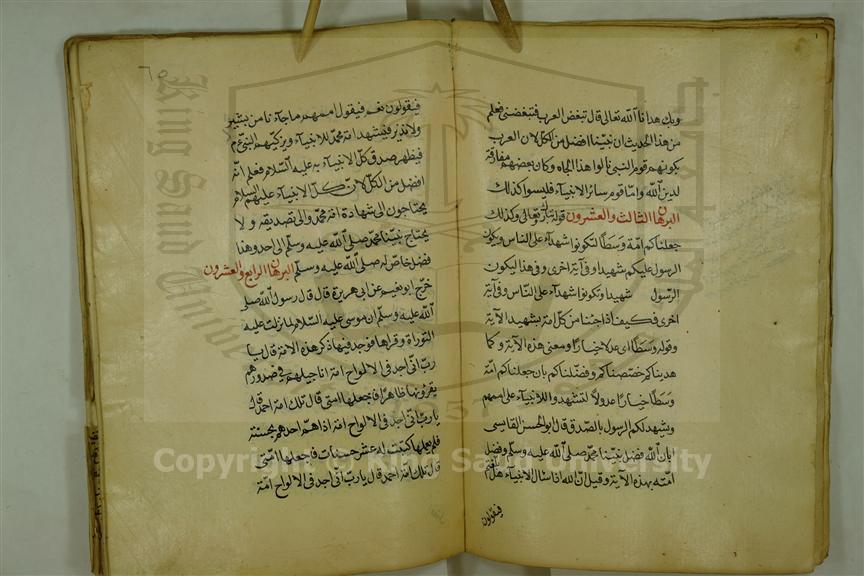 وبك هدانا الله تعالى قال تبغض العرب فتبغضني فعلم
من هذا الحديث ان نبينا افضل من الكل لان العرب
بكونهم قوم النبي نالوا هذا الجاه وكان بعضهم مفارقة
لدين الله واما قوم سائر الانبياء فليسوا كذلك
البرهان الثالث والعشرون قوله تعالى وكذلك
جعلناكم امة وسطا لتكونوا شهداء على الناس ويكون
الرسول عليكم شهيدا وفي آية اخرى وفي هذا ليكون
الرسول شهيدا وتكونوا شهداء على الناس وفي آية
اخرى فكيف اذا جئنا من كل امة بشهيد الآية
وقوله وسطا اى عدلا خيارا ومعنى هذه الآية وكما
هديناكم خصصناكم وفضلناكم بان جعلناكم امة
وسطا خيارا عدولا لتشهدوا للانبياء على اممهم
ويشهد لكم الرسول بالصدق قال ابو الحسن القابسي
ابان الله فضل نبينا محمد صلى الله عليه وسلم وفضل
امته بهذه الآية وقيل ان الله اذا سأل الانبياء هل بلغتم
فيقولون
٦٥
فيقولون نعم فيقول اممهم ما جاءنا من بشير
ولا نذير فيشهد امة محمد للانبياء ويزكيهم النبي عم
فيظهر صدق كل الانبياء به عليه السلام فعلم انه
افضل من الكل لان كل الانبياء عليهم السلام
يحتاجون الى شهادة امة محمد والى تصديقه ولا
يحتاج نبينا محمد صلى الله عليه وسلم الى احد وهذا
فضل خاص له صلى الله عليه وسلم البرهان الرابع والعشرون
خرج ابو نعيم عن ابي هريرة قال قال رسول الله صلى
الله عليه وسلم ان موسى عليه السلام لما نزلت عليه
التوراة وقراها فوجد فيها ذكر هذه الامة قال يا
رب انى اجد فى الالواح امة اناجيلهم فى صدورهم
يقرؤنها ظاهرا فاجعلها امتى قال تلك امة احمد قال
يا رب انى اجد فى الالواح امة اذا هم احدهم بحسنة
فلم يعلمها كتبت له عشر حسنات فاجعلها امتى
قال تلك امة احمد قال يا رب انى اجد فى الالواح امة
King Saud Unive
1957
Copyright © King Saud University